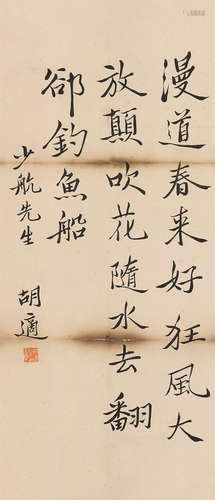 漫道春来好狂風大
放顛吹花隨水去翻
郤釣魚船
少航先生
胡適